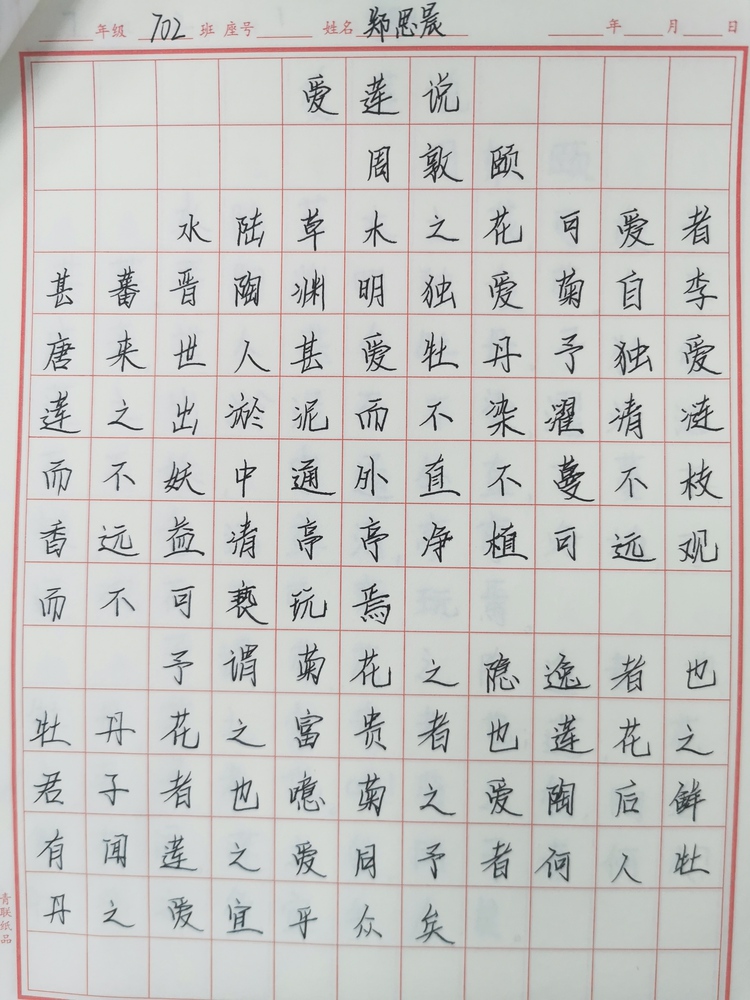 年级 702 班 座号 姓名 郑思晨 年 月 日
爱莲说
周敦颐
水陆草木之花可爱者
甚蕃晋陶渊明独爱菊自李
唐来世人甚爱牡丹予独爱
莲之出淤泥而不染濯清涟
而不妖中通外直不蔓不枝
香远益清亭亭净植可远观
而不可亵玩焉
予谓菊花之隐逸者也
牡丹花之富贵者也莲花之
君子者也噫菊之爱陶后鲜
有闻莲之爱同予者何人牡
丹之爱宜乎众矣
青联纸品